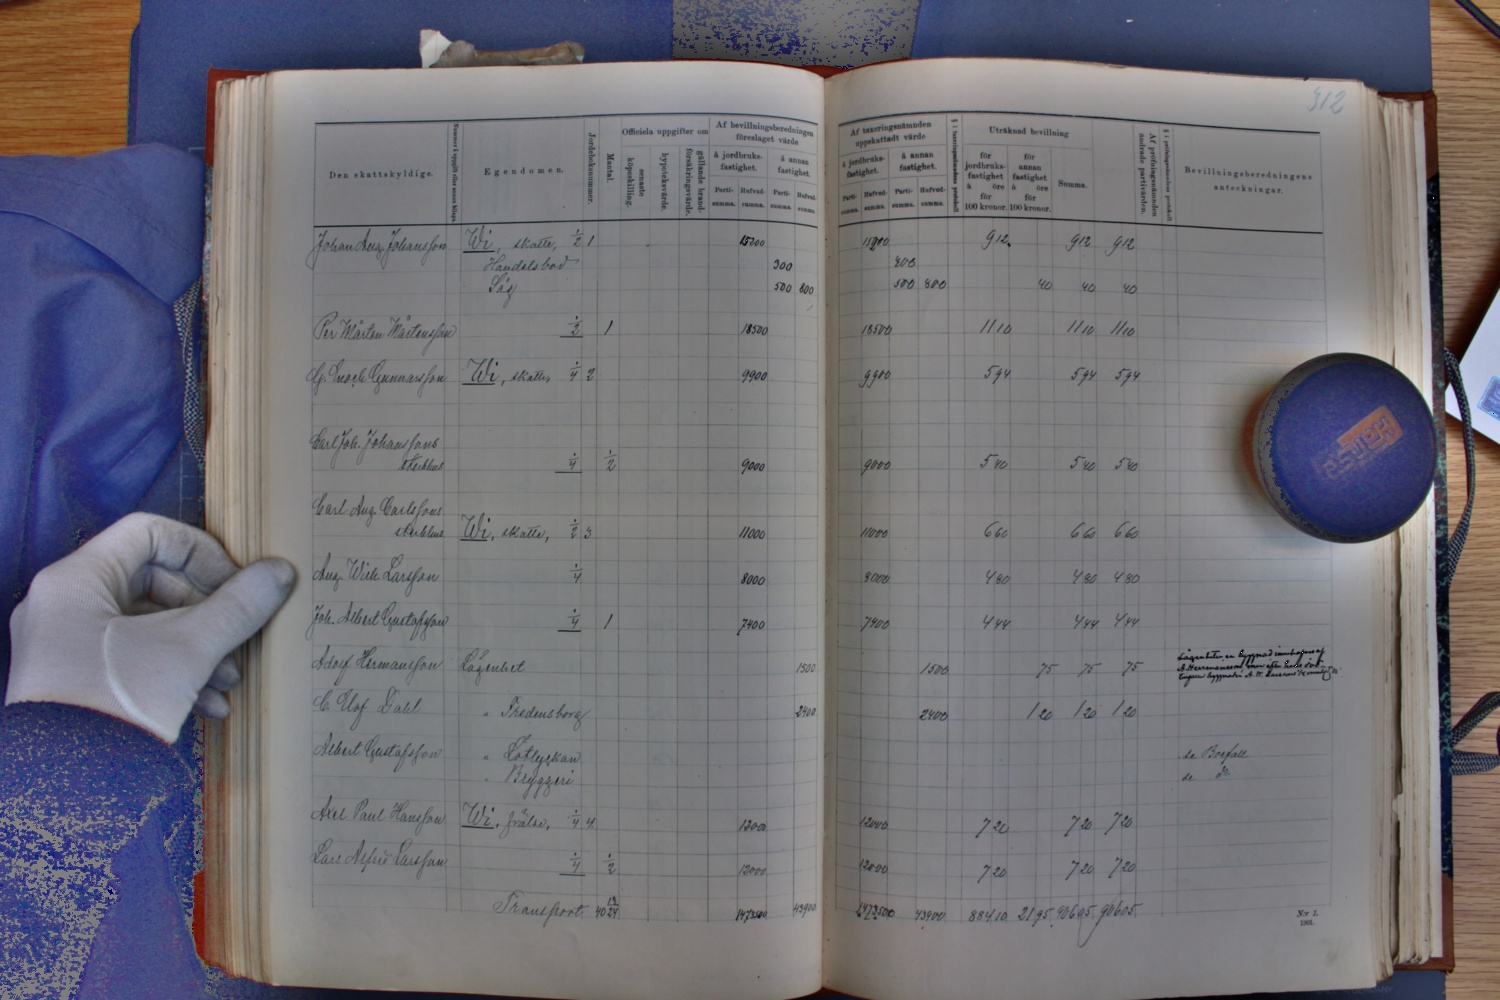 312
Den skattskyldige.
Egendomen.
Jordeboksnummer.
Mantal.
Officiela uppgifter om
senaste köpeskilling.
hypoteksvärde.
gällande brandförsäkringsvärde.
Af bevillningsberedningen föreslaget värde
å jordbruksfastighet.
å annan fastighet.
Partisumma.
Hufvudsumma.
Partisumma.
Hufvudsumma.
Af taxeringsnämnden uppskattadt värde
å jordbruksfastighet.
å annan fastighet.
Partisumma.
Hufvudsumma.
Partisumma.
Hufvudsumma.
§ i taxeringsnämndens protokoll
Uträknad bevillning
för jordbruksfastighet à öre för 100 kronor.
för annan fastighet à öre för 100 kronor.
Summa.
Af pröfningsnämnden ändrade partivärden.
Bevillningsberedningens anteckningar.
Johan Aug. Johansson Wi, skatte, 1/2 1 15200 15200 912 912 912
Handelsbod 300 400
Såg 500 800 500 800 40 40 40
Per Mårten Mårtensson 1/2 1 18500 18500 1110 1110 1110
G. Enoch Gunnarsson Wi, skatte, 1/4 2 9900 9900 594 594 594
Carl Joh. Johanssons
sterbhus 1/4 1/2 9000 9000 540 540 540
Carl Aug. Carlssons
sterbhus Wi, skatte, 1/2 3 11000 11000 660 660 660
Aug. Wilh. Larsson 1/4 8000 8000 480 480 480
Joh. Albert Gustafsson 1/4 1 7400 7400 444 444 444
Adolf Hermansson Lägenhet 1500 1500 75 75 75
C. Olof Dahl " Fredensborg 2400 2400 120 120 120
Albert Gustafsson " Lötlyckan
" Bryggeri
Axel Paul Hansson Wi, frälse, 1/4 4 12000 12000 720 720 720
Lars Alfred Larsson 1/4 1/2 12000 12000 720 720 720
Transport 40 13/24 1473500 43900 1473500 43900 88410 2195 90605 90605
N:r 1.
1901.